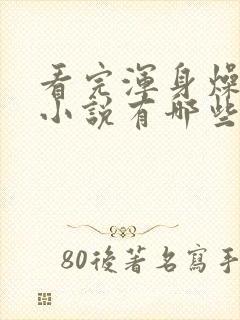 看完渾身燥
小說有哪些
80後著名寫手